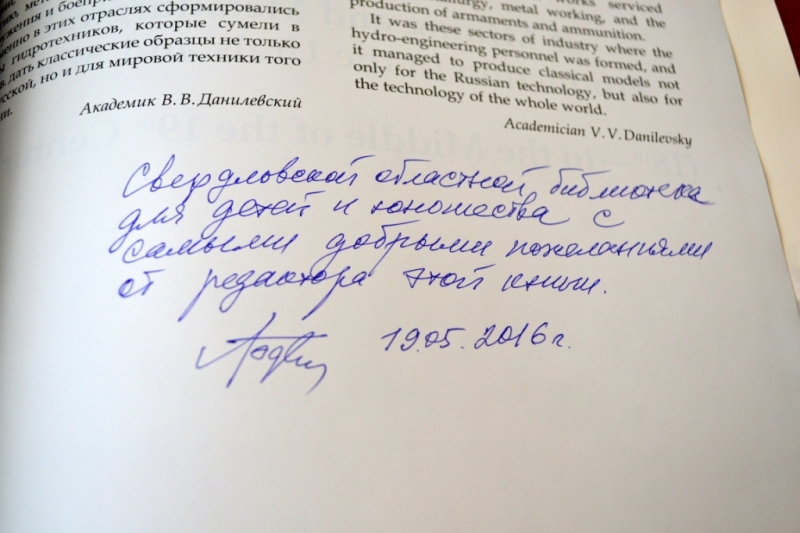 ужения и боепри
енно в этих отраслях сформировались
ы гидротехников, которые сумели в
дать классические образцы не только
сской, но и для мировой техники того
ни.
Академик В. В. Данилевский
works serviced
metal working, and the
production of armaments and ammunition.
It was these sectors of industry where the
hydro-engineering personnel was formed, and
it managed to produce classical models not
only for the Russian technology, but also for
the technology of the whole world.
Academician V. V. Danilevsky
Свердловской областной библиотеке
для детей и юношества с
самыми добрыми пожеланиями
от редактора этой книги.
19.05.2016 г.